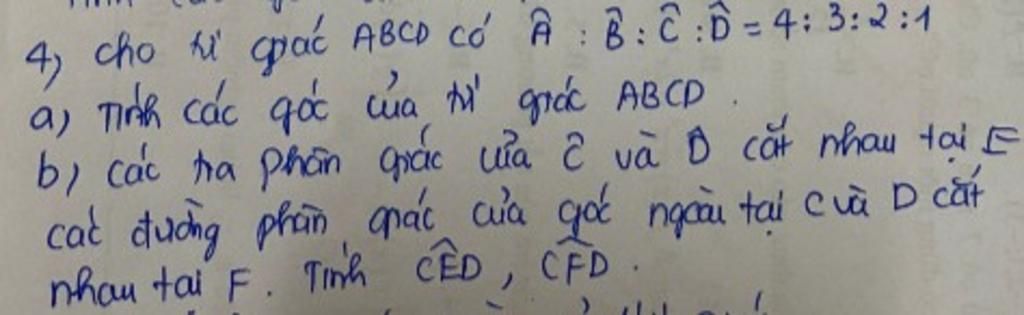 4) cho tứ giác ABCD có Â : B̂ : Ĉ : D̂ = 4 : 3 : 2 : 1
a) Tính các góc của tứ giác ABCD .
b) các tia phân giác của Ĉ và D̂ cắt nhau tại E
các đường phân giác của góc ngoài tại C và D cắt
nhau tại F . Tính CÊD , CF̂D .